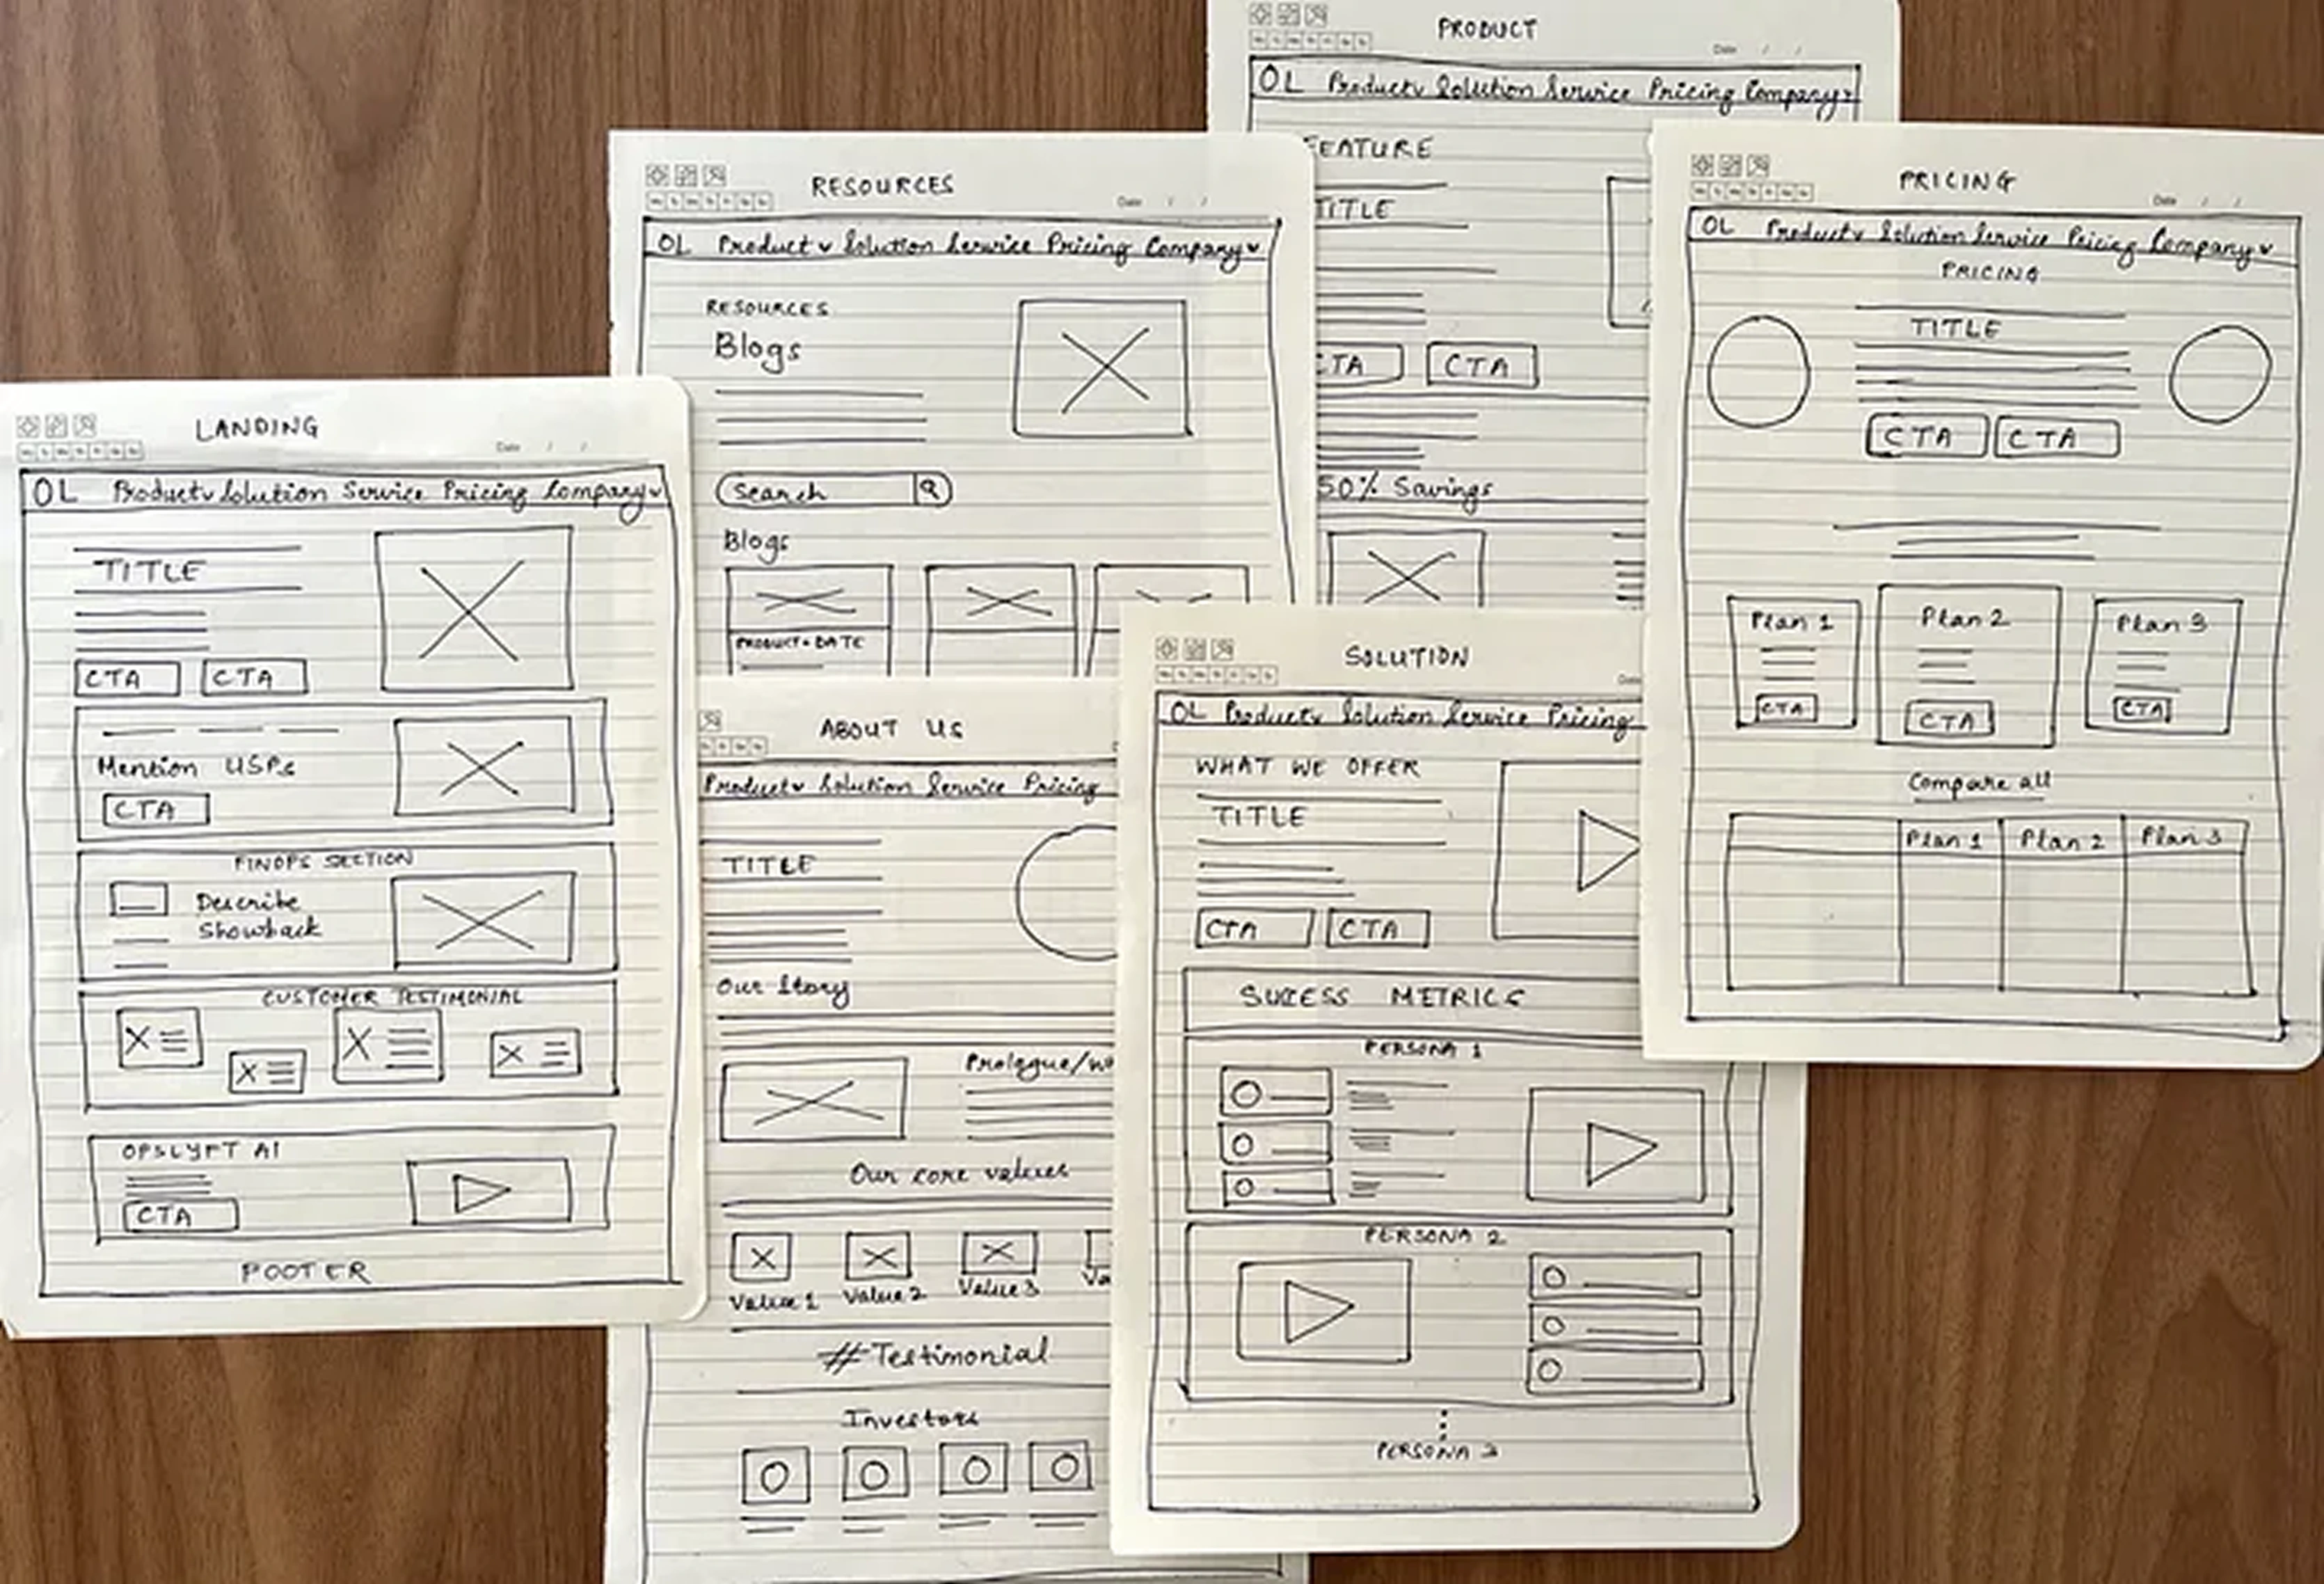 PRODUCT
Date / /
OL Product˅ Solution Service Pricing Company˅
FEATURE
TITLE
CTA CTA
50% Savings
RESOURCES
Date / /
OL Product ˅ Solution Service Pricing Company ˅
RESOURCES
Blogs
Search
Blogs
PRODUCT • DATE
PRICING
Date / /
OL Product˅ Solution Service Pricing Company ˅
PRICING
TITLE
CTA CTA
Plan 1 Plan 2 Plan 3
CTA CTA CTA
Compare all
Plan 1 Plan 2 Plan 3
LANDING
Date / /
OL Product˅ Solution Service Pricing Company˅
TITLE
CTA CTA
Mention USPs
CTA
FINOPS SECTION
Describe
Showback
CUSTOMER TESTIMONIAL
OPSLYFT AI
CTA
FOOTER
ABOUT US
Product ˅ Solution Service Pricing
TITLE
Our Story
Prologue/
Our core values
Value 1 Value 2 Value 3 Va
#Testimonial
Investors
SOLUTION
OL Product˅ Solution Service Pricing
WHAT WE OFFER
TITLE
CTA CTA
SUCESS METRICS
PERSONA 1
PERSONA 2
PERSONA 3